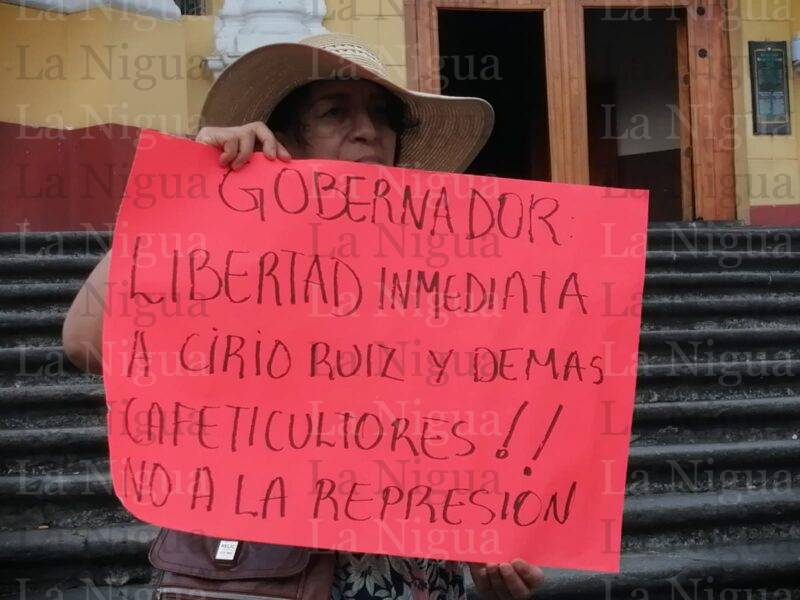 GOBERNADOR:
LIBERTAD INMEDIATA
A CIRIO RUIZ Y DEMAS
CAFETICULTORES!!
NO A LA REPRESIÓN
La Nigua